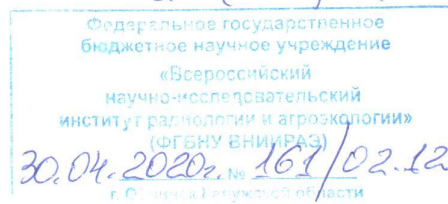 Федеральное государственное
бюджетное научное учреждение
«Всероссийский
научно-исследовательский
институт радиологии и агроэкологии»
(ФГБНУ ВНИИРАЭ)
30.04.2020г. № 161/02.12
г. Обнинск Калужской области